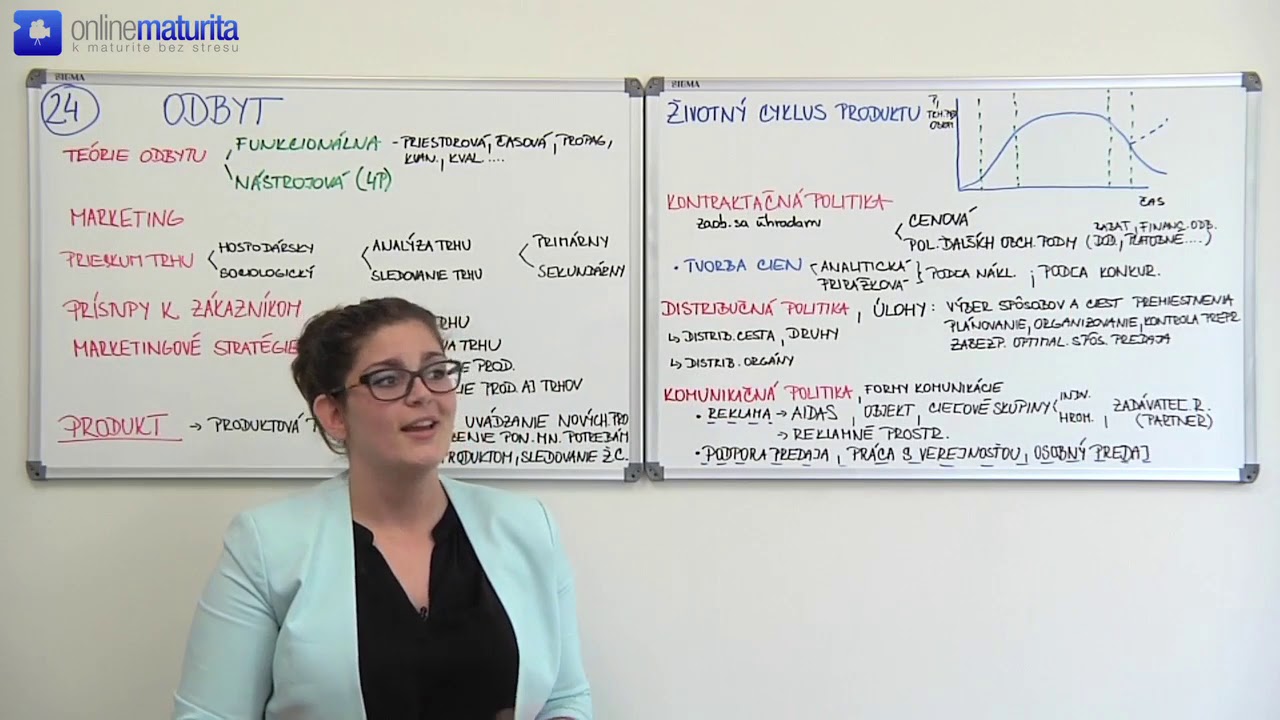 onlinematurita
k maturite bez stresu
SIGMA
24 ODBYT
TEÓRIE ODBYTU
FUNKCIONÁLNA - PRIESTOROVÁ, ČASOVÁ, PROPAG,
KVAN., KVAL ....
NÁSTROJOVÁ (4P)
MARKETING
PRIESKUM TRHU
HOSPODÁRSKY
SOCIOLOGICKÝ
ANALÝZA TRHU
SLEDOVANIE TRHU
PRIMÁRNY
SEKUNDÁRNY
PRÍSTUPY K ZÁKAZNÍKOM
TRHU
MARKETINGOVÉ STRATÉGIE
TRHU
PROD.
PROD. AJ TRHOV
PRODUKT → PRODUKTOVÁ
UVÁDZANIE NOVÝCH PRO
PON. MN. POTREBÁM
, SLEDOVANIE Ž.C.
SIGMA
ŽIVOTNÝ CYKLUS PRODUKTU
ČAS
KONTRAKTAČNÁ POLITIKA
zaob. sa úhradami
CENOVÁ
POL. ĎALŠÍCH OBCH. PODM (DOD., PLATOBNÉ....)
RABAT, FINANC. ODB.
• TVORBA CIEN
ANALITICKÁ
PRIRÁŽKOVÁ
PODĽA NÁKL. ; PODĽA KONKUR.
DISTRIBUČNÁ POLITIKA, ÚLOHY: VÝBER SPÔSOBOV A CIEST PREMIESTNENIA
PLÁNOVANIE, ORGANIZOVANIE, KONTROLA PREPR
ZABEZP. OPTIMAL. SPÔS. PREDAJA
↳ DISTRIB. CESTA, DRUHY
↳ DISTRIB. ORGÁNY
KOMUNIKAČNÁ POLITIKA, FORMY KOMUNIKÁCIE
• REKLAMA → AIDAS, OBJEKT, CIEĽOVÉ SKUPINY
INDIV.
HROM.
, ZADÁVATEĽ R.
(PARTNER)
→ REKLAMNÉ PROSTR.
• PODPORA PREDAJA, PRÁCA S VEREJNOSŤOU, OSOBNÝ PREDAJ